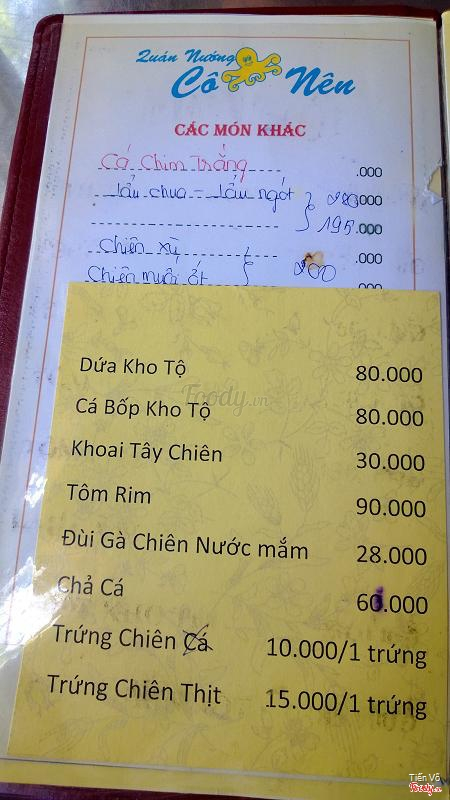 Quán Nướng
Cô Nên
CÁC MÓN KHÁC
Cá Chim Trắng .000
Lẩu chua - Lẩu ngót 000
195.000
Chiên xù .000
Chiên muối ớt 200
Dứa Kho Tộ 80.000
Cá Bốp Kho Tộ 80.000
Khoai Tây Chiên 30.000
Tôm Rim 90.000
Đùi Gà Chiên Nước mắm 28.000
Chả Cá 60.000
Trứng Chiên Cá 10.000/1 trứng
Trứng Chiên Thịt 15.000/1 trứng
Foody.vn
Tiến Võ
Foody.vn